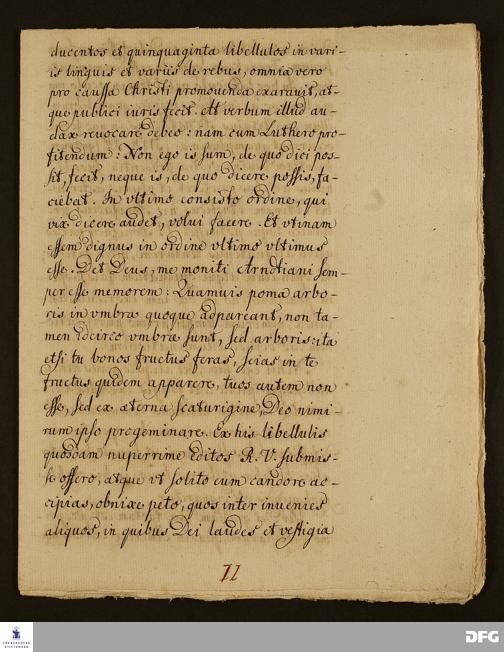 ducentos et quinquaginta libellulos in vari-
is linguis et variis de rebus, omnia vero
pro caussa Christi promouenda exarauit, at-
que publici iuris fecit. At verbum illud au-
dax reuocare debeo: nam cum Luthero pro-
fitendum: Non ego is sum, de quo dici pos-
sit, fecit, neque is, de quo dicere possis, fa-
ciebat. In vltimo consisto ordine, qui
vix dicere audet, volui facere. Et vtinam
essem dignus in ordine vltimo vltimus
esse. Det Deus, me moniti Arndtiani sem-
per esse memorem: Quamuis poma arbo-
ris in vmbra quoque adpareant, non ta-
men idcirco vmbræ sunt, sed arboris: ita
etsi tu bonos fructus feras, scias in te
fructus quidem apparere, tuos autem non
esse, sed ex æterna scaturigine, Deo nimi-
rum ipso progeminare. Ex his libellulis
quosdam nuperrime editos R. V. submis-
se offero, atque vt solito cum candore ac-
cipias, obnixe peto, quos inter inuenies
aliquos, in quibus Dei laudes et vestigia
11
FRANCKESCHE
STIFTUNGEN
DFG